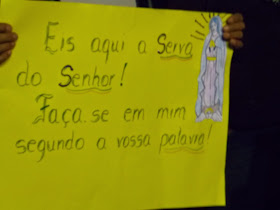 Eis aqui a Serva
do Senhor!
Faça-se em mim
segundo a vossa palavra!